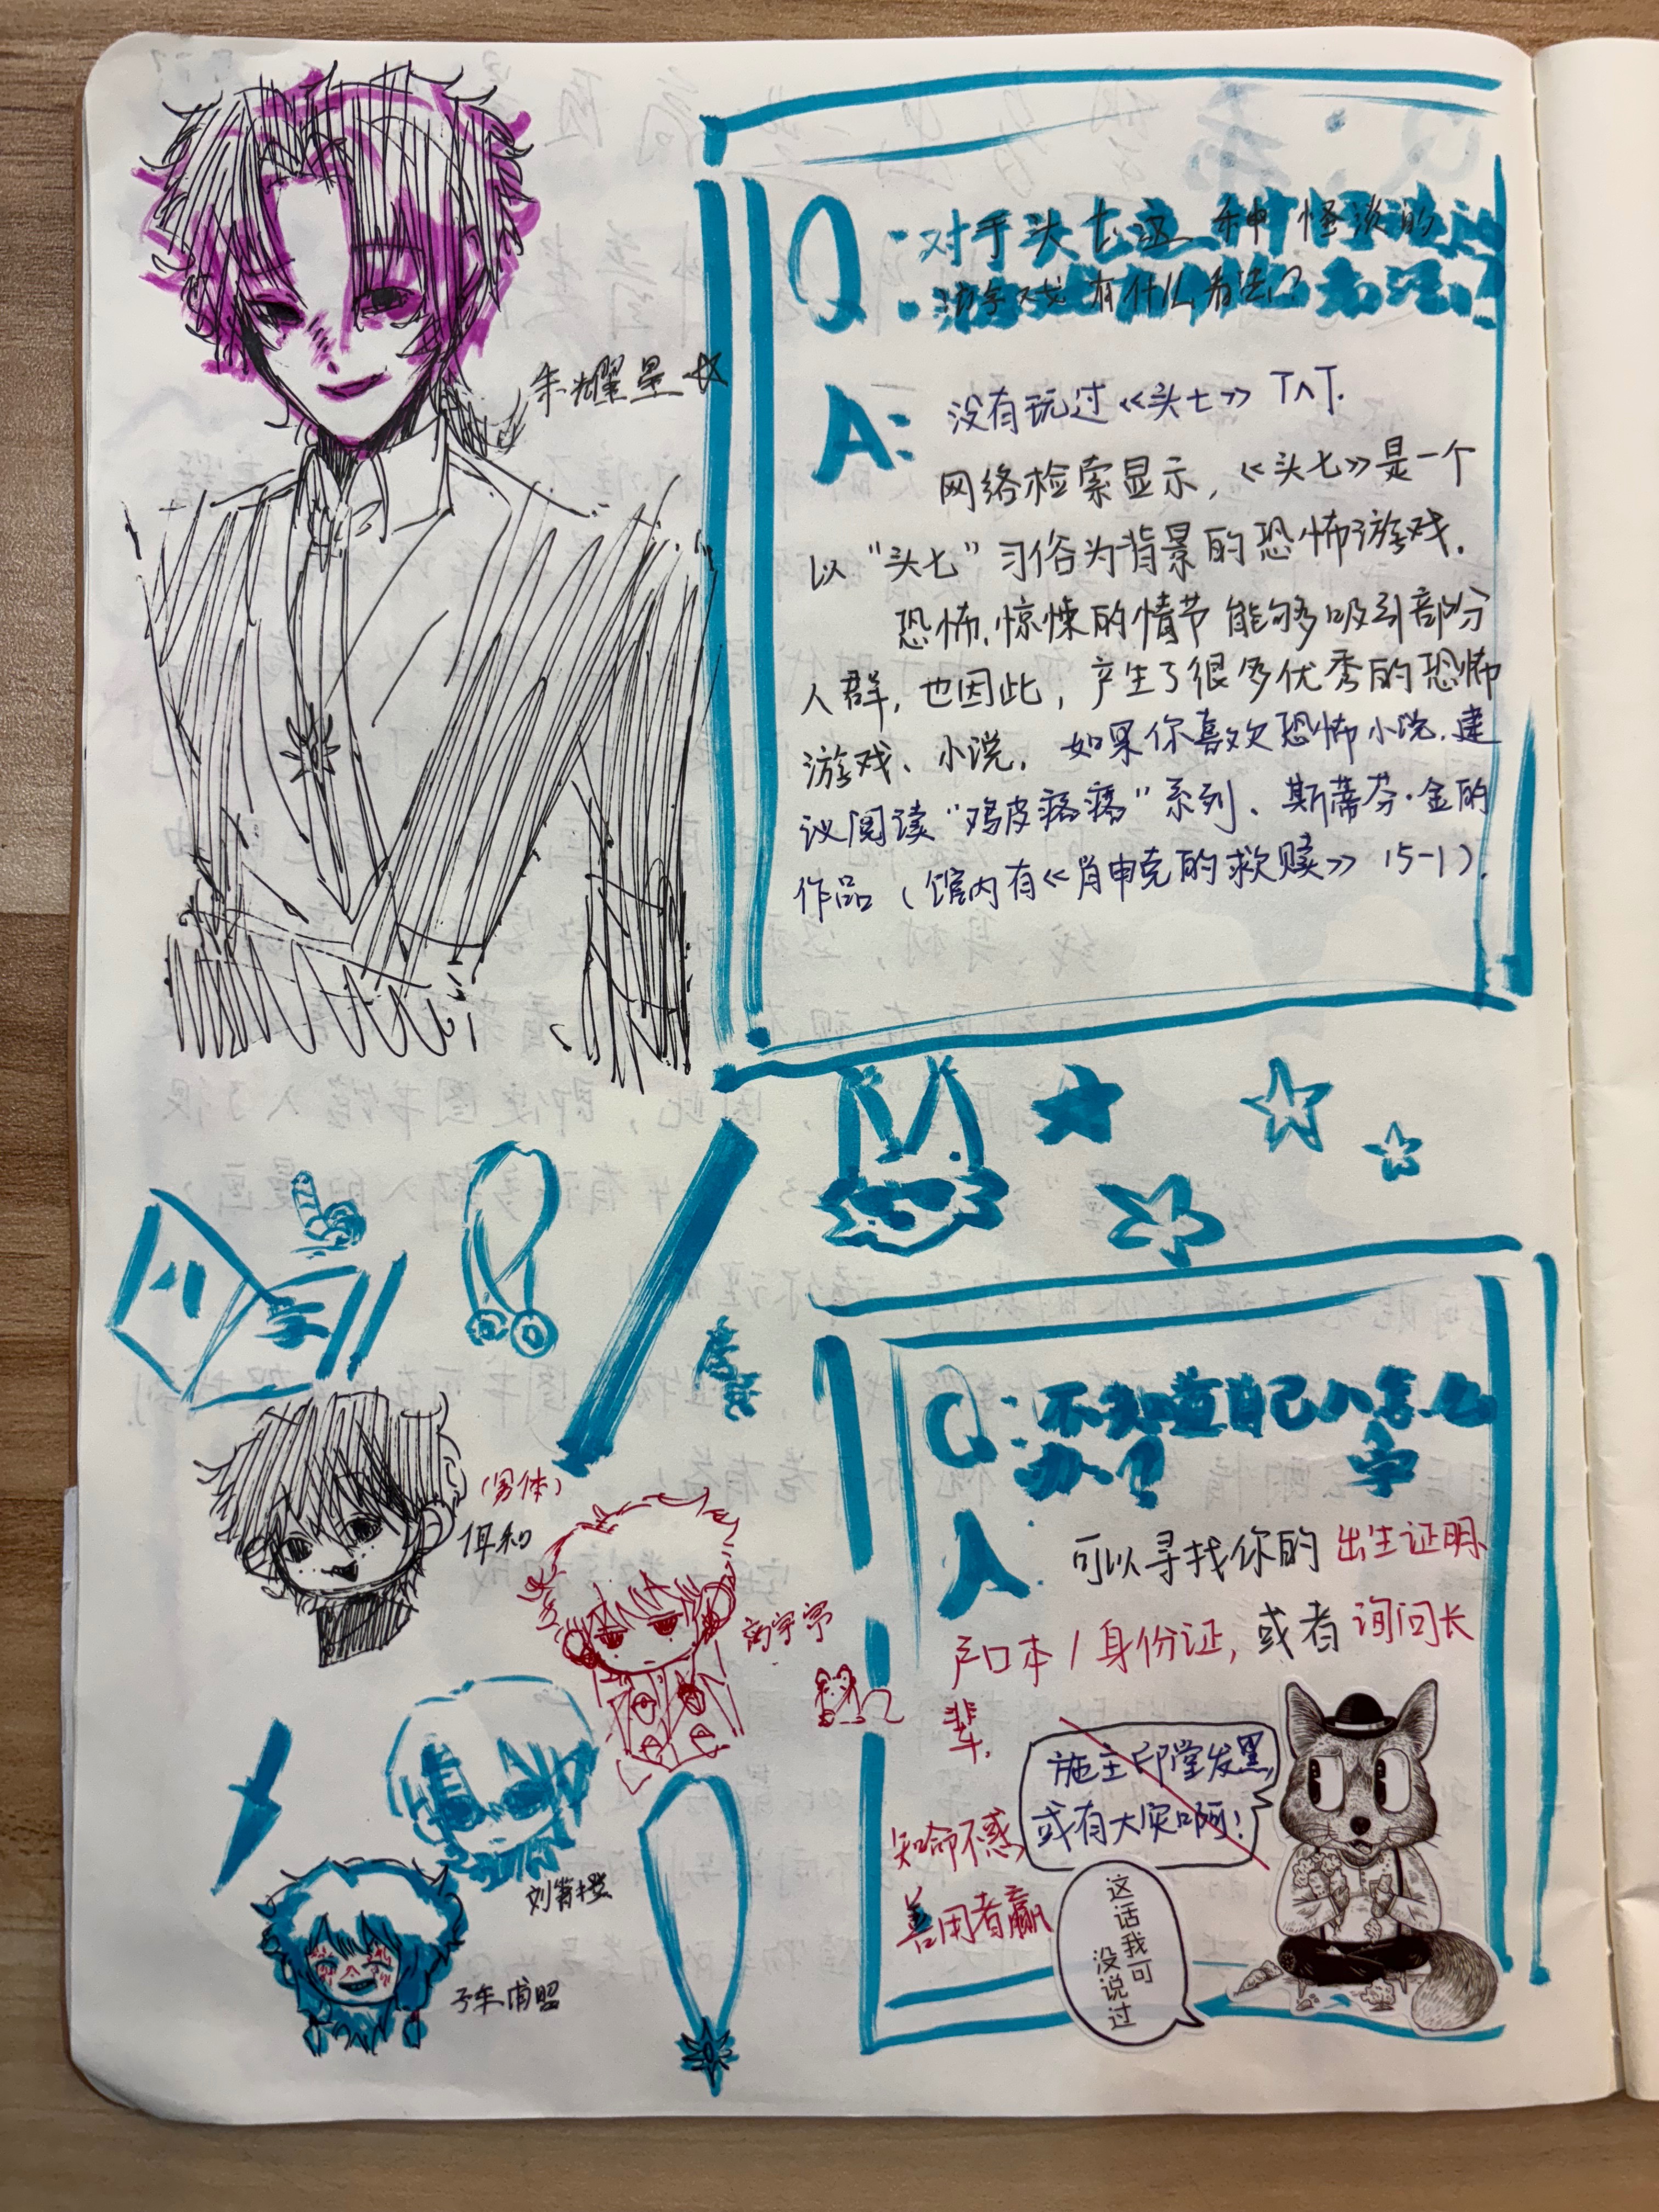 朱耀星
Q:对于头七这种怪谈的
游戏有什么看法?
A:没有玩过《头七》TAT.
网络检索显示,《头七》是一个
以“头七”习俗为背景的恐怖游戏.
恐怖、惊悚的情节能够吸引部分
人群,也因此,产生了很多优秀的恐怖
游戏、小说. 如果你喜欢恐怖小说,建
议阅读“鸡皮疙瘩”系列、斯蒂芬·金的
作品(馆内有《肖申克的救赎》15-1).
Q:不知道自己八字怎么
办?
A:可以寻找你的出生证明、
户口本/身份证,或者询问长
辈.
施主印堂发黑,
或有大灾啊!
知命不惑
善用者赢
这话我可
没说过
(男体)
佴和
高宇宁
子车甫昭